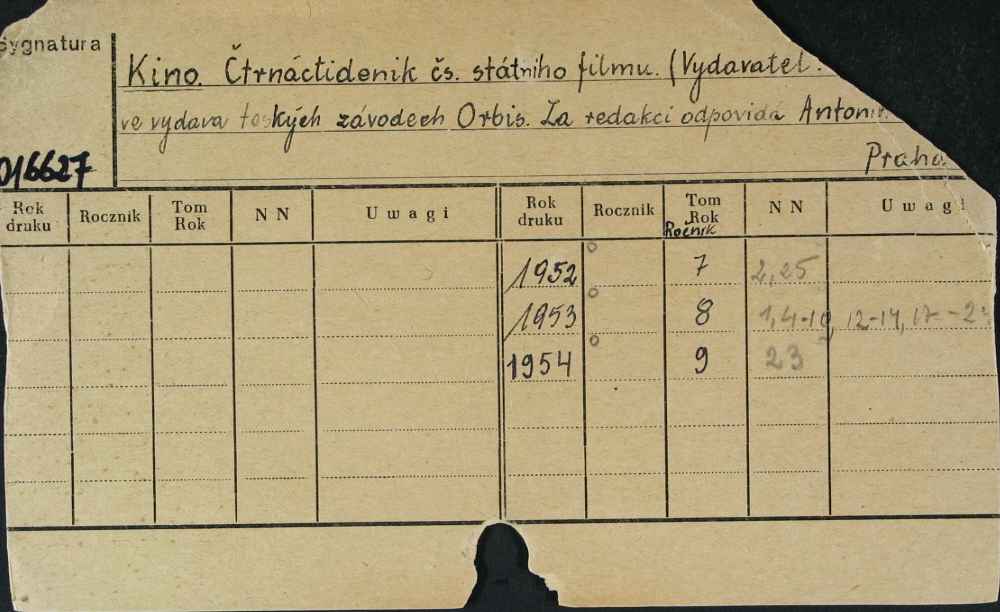 Sygnatura
Kino. Čtrnáctideník čs. státního filmu. (Vydavatel:
ve vydavatelských závodech Orbis. Za redakci odpovídá
016627
Praha
Rok druku Rocznik Tom Rok NN Uwagi Rok druku Rocznik Tom Rok NN Uwagi
Ročník
1952 7 2, 25
1953 8 1, 4-10, 12-14, 17-
1954 9 23